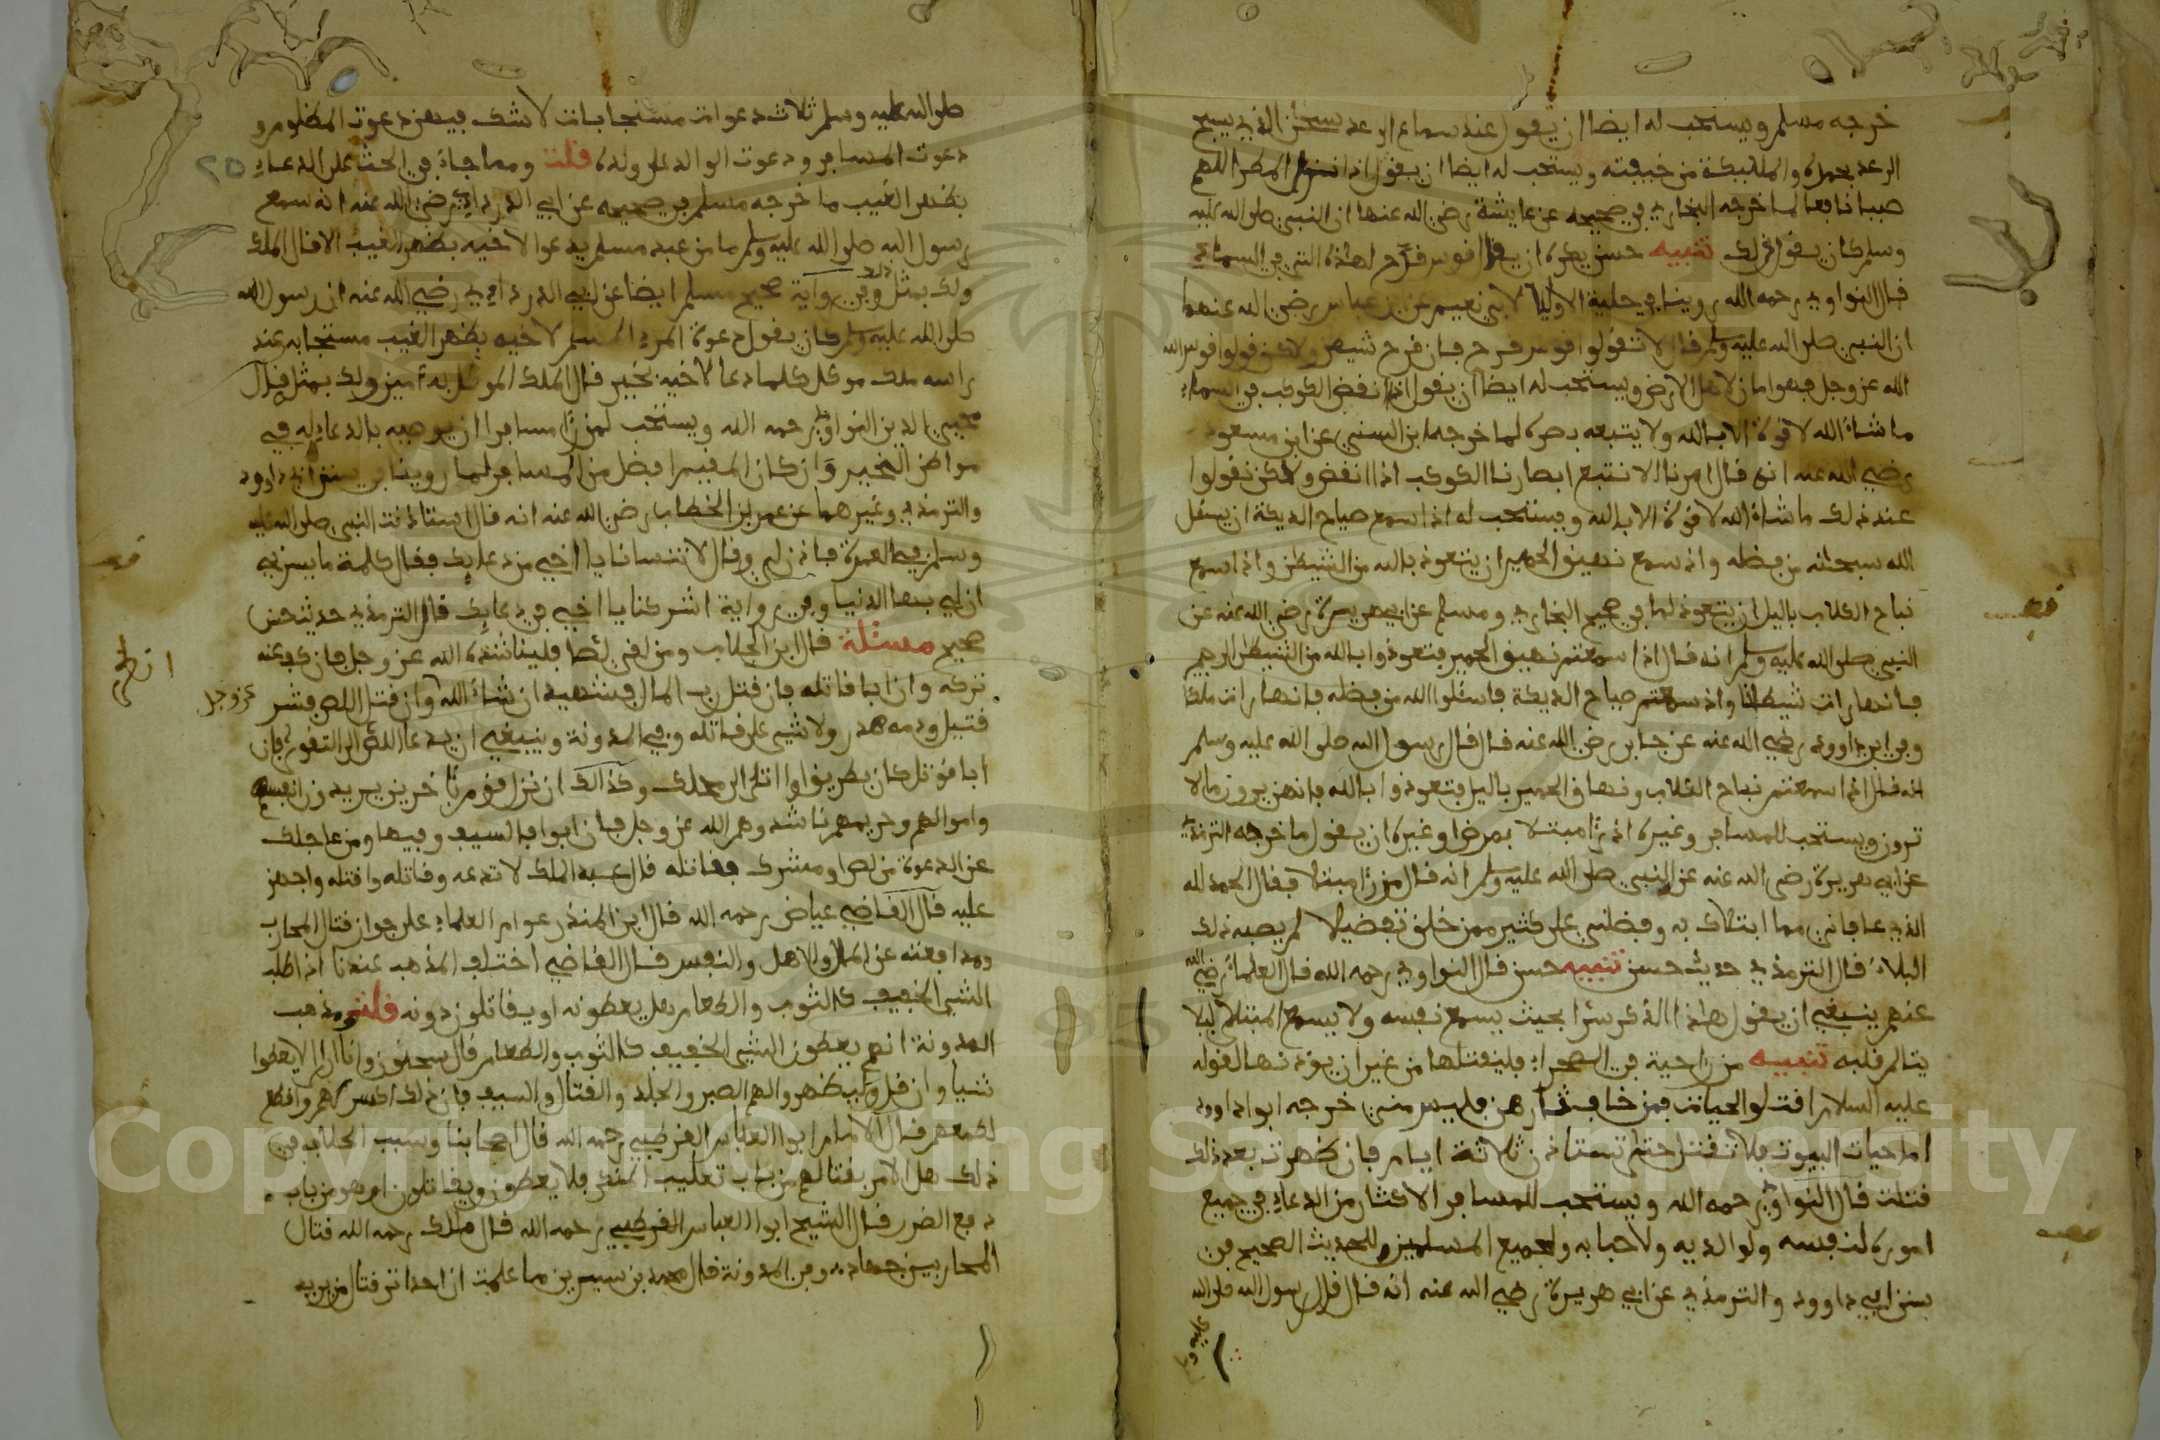 خرجه مسلم ويستحب له ايضا ان يقول عند سماع الرعد سبحن الذي يسبح
الرعد بحمده والمليكة من خيفته ويستحب له ايضا ان يقول اذا نزل المطر اللهم
صيبا نافعا لما خرجه البخاري في صحيحه عن عايشة رضي الله عنها ان النبي صلى الله عليه
وسلم كان يقول ذلك تنبيه حسن يكره ان يقال قوس قزح لهذه التي في السماء
قال النواوي رحمه الله روينا في حلية الاوليا لابي نعيم عن ابن عباس رضي الله عنهما
ان النبي صلى الله عليه وسلم قال لا تقولوا قوس قزح فان قزح شيطن ولاكن قولوا قوس الله
الله عز وجل فهو امان لاهل الارض ويستحب له ايضا ان يقول اذا انقض الكوكب في السماء
ما شاء الله لا قوة الا بالله ولا يتبعه بصره لما خرجه ابن السني عن ابن مسعود
رضي الله عنه انه قال امرنا الا نتبع ابصارنا الكوكب اذا انقض ولاكن نقولوا
عند ذلك ما شاء الله لا قوة الا بالله ويستحب له اذا سمع صياح الديكة ان يسئل
الله سبحنه من فضله واذ سمع نهيق الحمير ان يتعوذ بالله من الشيطن واذ اسمع
نباح الكلاب باليل ان يتعوذ لما في صحيح البخاري ومسلم عن ابي هريرة رضي الله عنه عن
النبي صلى الله عليه وسلم انه قال اذا سمعتم نهيق الحمير فتعوذوا بالله من الشيطن الرجيم
فانها رات شيطنا واذ سمعتم صياح الديكة فاسئلوا الله من فضله فانها رات ملكا
وفي ابي داوود رضي الله عنه عن جابر رضي الله عنه قال قال رسول الله صلى الله عليه وسلم
انه قال اذا سمعتم نباح الكلاب ونهاق الحمير باليل فتعوذوا بالله فانهن يرون ما لا
ترون ويستحب للمسافر وغيره اذ رءا مبتلا بمرض او غيره ان يقول ما خرجه الترمذي
عن ابي هريرة رضي الله عنه عن النبي صلى الله عليه وسلم انه قال من رءا مبتلا فقال الحمد لله
الذي عافاني مما ابتلاك به وفضلني على كثير ممن خلق تفضيلا لم يصبه ذلك
البلاء قال الترمذي حديث حسن تنبيه حسن قال النواوي رحمه الله قال العلماء رضي الله
عنهم ينبغي ان يقول هذا الذكر سرا بحيث يسمع نفسه ولا يسمع المبتلا ليلا
يتالم قلبه تنبيه من رءا حية في الصحراء فليقتلها من غير ان يؤذنها لقوله
عليه السلام اقتلوا الحيات فمن خاف ثارهن فليس مني خرجه ابوا داوود
اما حيات البيوت فلا تقتل حتى تستاذن ثلاثة ايام فان ظهرت بعد ذلك
قتلت قال النواوي رحمه الله ويستحب للمسافر الاكثار من الدعاء في جميع
اموره لنفسه ولوالديه ولاحبابه ولجميع المسلمين وللحديث الصحيح في
سنن ابي داوود والترمذي عن ابي هريرة رضي الله عنه انه قال قال رسول الله صلى الله
عليه و
صلى الله عليه وسلم ثلاث دعوات مستجابات لا شك فيهن دعوت المظلوم و
دعوت المسافر ودعوت الوالد على ولده قلت ومما جاء في الحث على الدعاء
٢٥
بظهر الغيب ما خرجه مسلم في صحيحه عن ابي الدرداء رضي الله عنه انه سمع
رسول الله صلى الله عليه وسلم ما من عبد مسلم يدعوا لاخيه بظهر الغيب الا قال الملك
ولك بمثل ذلك وفي رواية صحيح مسلم ايضا عن ابي الدرداء رضي الله عنه ان رسول الله
صلى الله عليه وسلم كان يقول دعوة المرء المسلم لاخيه بظهر الغيب مستجابه عند
راسه ملك موكل كلما دعا لاخيه بخير قال الملك الموكل به امين ولك بمثل قال
محيي الدين النواوي رحمه الله ويستحب لمن رءا مسافرا ان يوصيه بالدعاء له في
مواطن الخير وان كان المقيم افضل من المسافر لما روينا في سنن ابي داوود
والترمذي وغيرهما عن عمر بن الخطاب رضي الله عنه انه قال استاذنت النبي صلى الله عليه
وسلم في العمرة فاذن لي وقال لا تنسانا يا اخي من دعايك فقال كلمة ما يسرني
ان لي بها الدنيا وفي رواية اشركنا يا اخي في دعايك قال الترمذي حديث حسن
صحيح مسئلة قال ابن الجلاب ومن لقي لصا فليناشده الله عز وجل فان كف عنه
تركه وان ابا قاتله فان قتل رب المال فشهيد ان شاء الله وان قتل اللص فشر
عز وجل
قتيل ودمه هدر ولا شيء على قاتله وفي المدونة وينبغي ان يدعا اللص الى التقوى فان
ابا قوتل كان بطريق او اتى الى محلك وكذالك ان نزل قوم باخرين يريدون انفسهم
واموالهم وحريمهم ناشدوهم الله عز وجل فان ابوا فالسيف وفيها ومن عاجلك
عن الدعوة من لص او مشرك فقاتله قال عبد الملك لا تدعه وقاتله واقتله واجهز
عليه قال القاضي عياض رحمه الله قال ابن المنذر عوام العلماء على جواز قتال المحارب
ومدافعته عن المال والاهل والنفس قال القاضي اختلف المذهب عندنا اذ اطلب
الشيء الخفيف كالثوب والطعام هل يعطونه او يقاتلون دونه قلت ومذهب
المدونة انهم يعطون الشيء الخفيف كالثوب والطعام قال سحنون وانا ارا لا يعطوا
شيا وان قل وليظهروا لهم الصبر والجلد والقتال والسيف فان ذلك اكسر لهم واقطع
لطمعهم قال الامام ابوا العباس القرطبي رحمه الله قال اصحابنا وسبب الخلاف في
ذلك هل الامر بقتالهم من باب تغليب المنكر فلا يعطون ويقاتلون ام هو من باب
دفع الضرر قال الشيخ ابوا العباس القرطبي رحمه الله قال ملك رحمه الله قتال
المحاربين جهاد وفي المدونة قال محمد بن سيرين ما علمت ان احدا ترك قتال من يريد
Copyright © King Saud University